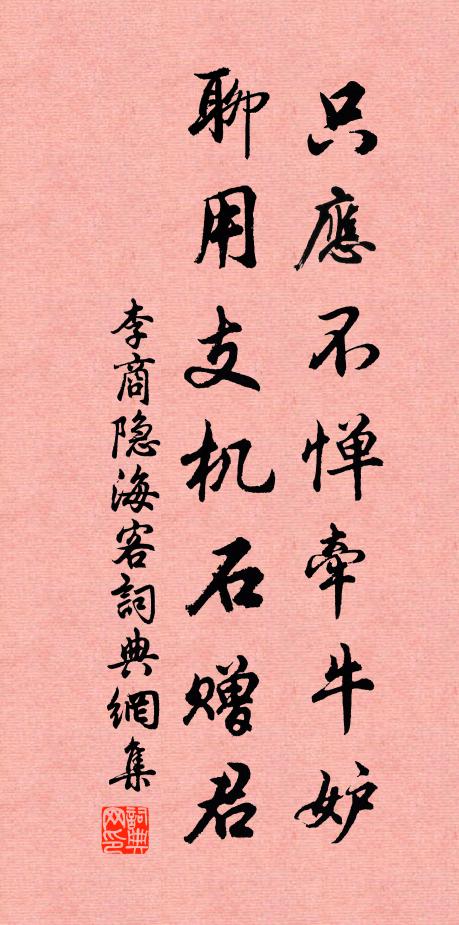 只應不憚牽牛妒
聊用支机石贈君
李商隐海客詞典網集
詞典网印